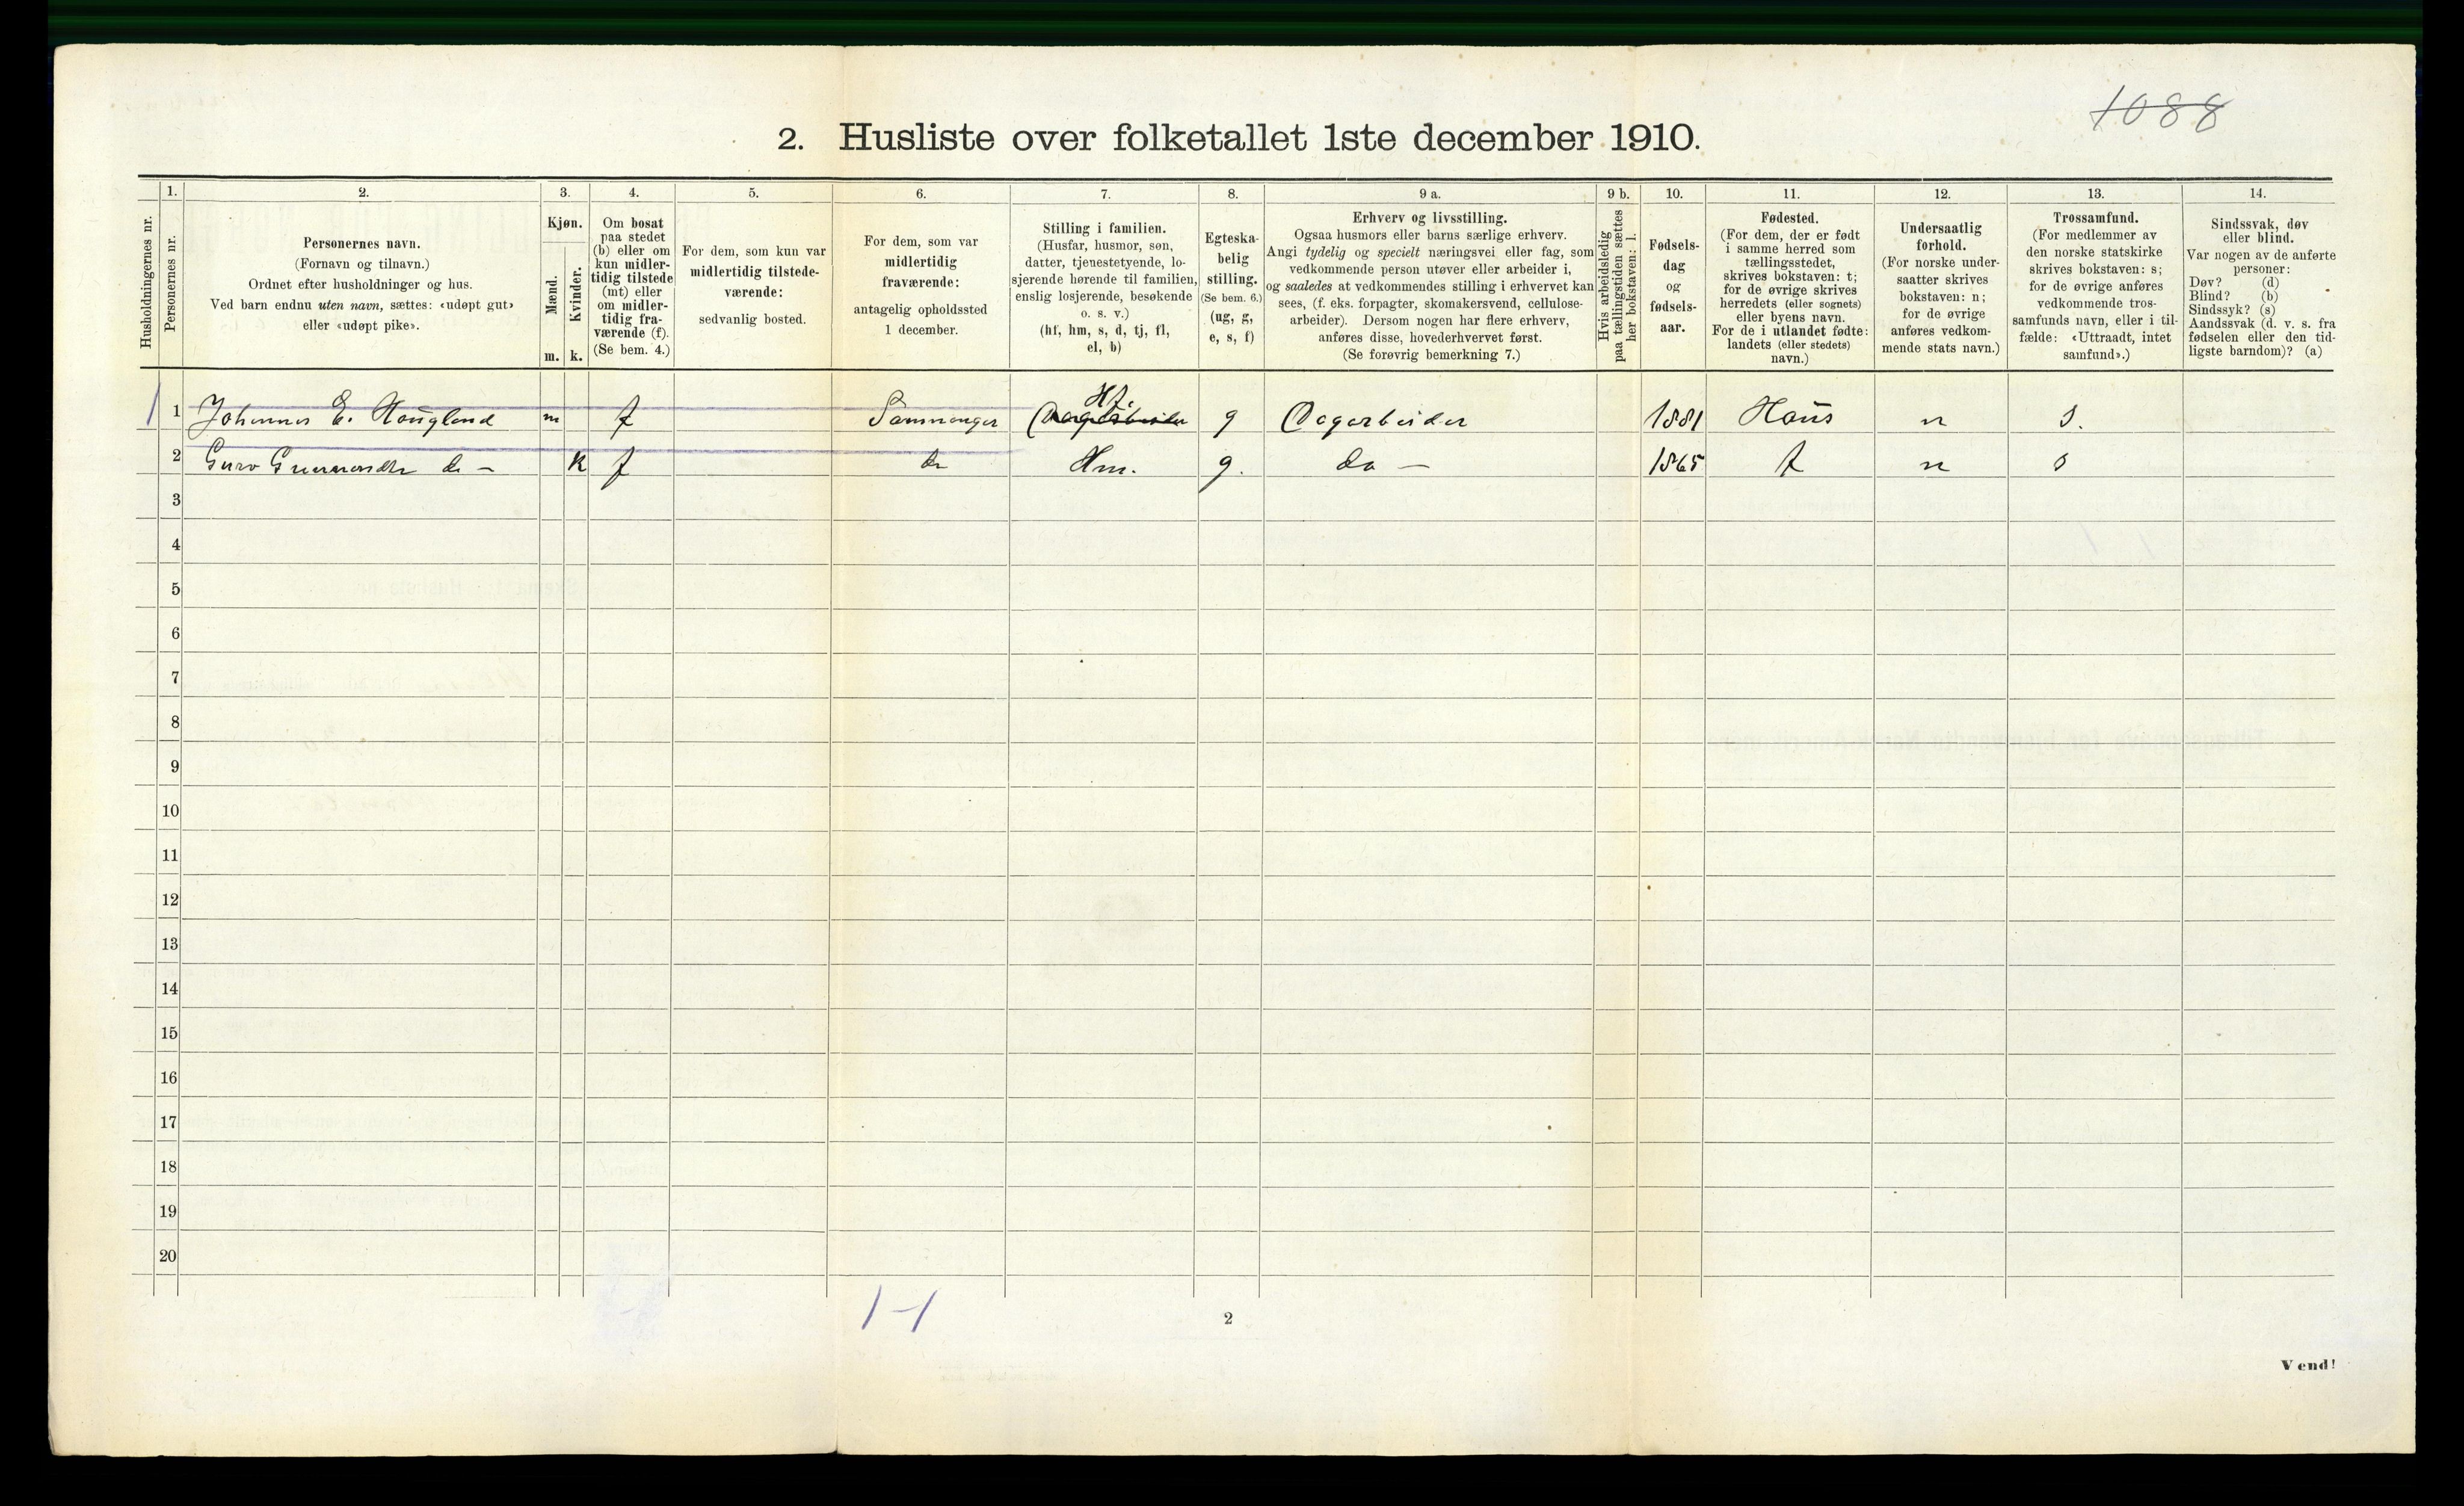 1088
2. Husliste over folketallet 1ste december 1910.
Husholdningernes nr.
1.
Personernes nr.
2.
Personernes navn.
(Fornavn og tilnavn.)
Ordnet efter husholdninger og hus.
Ved barn endnu uten navn, sættes: «udøpt gut»
eller «udøpt pike».
3.
Kjøn.
Mænd.
m.
Kvinder.
k.
4.
Om bosat
paa stedet
(b) eller om
kun midler-
tidig tilstede
(mt) eller
om midler-
tidig fra-
værende (f).
(Se bem. 4.)
5.
For dem, som kun var
midlertidig tilstede-
værende:
sedvanlig bosted.
6.
For dem, som var
midlertidig
fraværende:
antagelig opholdssted
1 december.
7.
Stilling i familien.
(Husfar, husmor, søn,
datter, tjenestetyende, lo-
sjerende hørende til familien,
enslig losjerende, besøkende
o. s. v.)
(hf, hm, s, d, tj, fl,
el, b)
8.
Egteska-
belig
stilling.
(Se bem. 6.)
(ug, g,
e, s, f)
9 a.
Erhverv og livsstilling.
Ogsaa husmors eller barns særlige erhverv.
Angi tydelig og specielt næringsvei eller fag, som
vedkommende person utøver eller arbeider i,
og saaledes at vedkommendes stilling i erhvervet kan
sees, (f. eks. forpagter, skomakersvend, cellulose-
arbeider). Dersom nogen har flere erhverv,
anføres disse, hovederhvervet først.
(Se forøvrig bemerkning 7.)
9 b.
Hvis arbeidsledig
paa tællingstiden sættes
her bokstaven: l.
10.
Fødsels-
dag
og
fødsels-
aar.
11.
Fødested.
(For dem, der er født
i samme herred som
tællingsstedet,
skrives bokstaven: t;
for de øvrige skrives
herredets (eller sognets)
eller byens navn.
For de i utlandet fødte:
landets (eller stedets)
navn.)
12.
Undersaatlig
forhold.
(For norske under-
saatter skrives
bokstaven: n;
for de øvrige
anføres vedkom-
mende stats navn.)
13.
Trossamfund.
(For medlemmer av
den norske statskirke
skrives bokstaven: s;
for de øvrige anføres
vedkommende tros-
samfunds navn, eller i til-
fælde: «Uttraadt, intet
samfund».)
14.
Sindssvak, døv
eller blind.
Var nogen av de anførte
personer:
Døv? (d)
Blind? (b)
Sindssyk? (s)
Aandssvak (d. v. s. fra
fødselen eller den tid-
ligste barndom)? (a)
1 1 Johannes E. Haugland m f Samnanger Hf. g Dagarbeider 1881 Haus n s.
2 Guro do – k f do Hm. g. do — 1865 t n s
3
4
5
6
7
8
9
10
11
12
13
14
15
16
17
18
19
20
1-1
2
Vend!